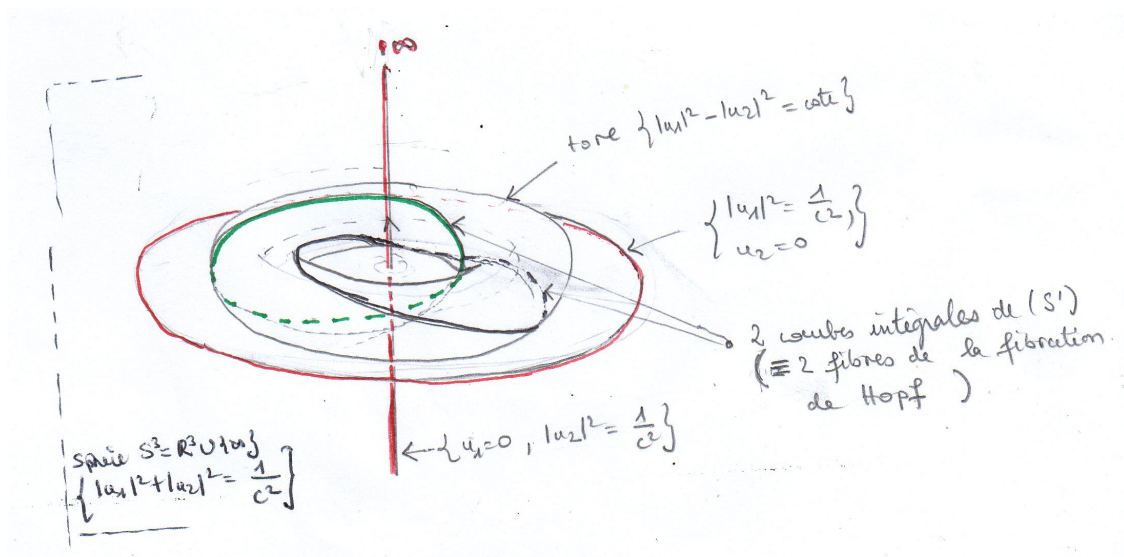 ∞
tore {|u₁|² - |u₂|² = cste}
{|u₁|² = 1/c²,
u₂ = 0}
2 courbes intégrales de (S')
(≡ 2 fibres de la fibration
de Hopf )
{u₁=0 , |u₂|² = 1/c²}
sphère S³=R³∪{∞}
{|u₁|²+|u₂|² = 1/c²}